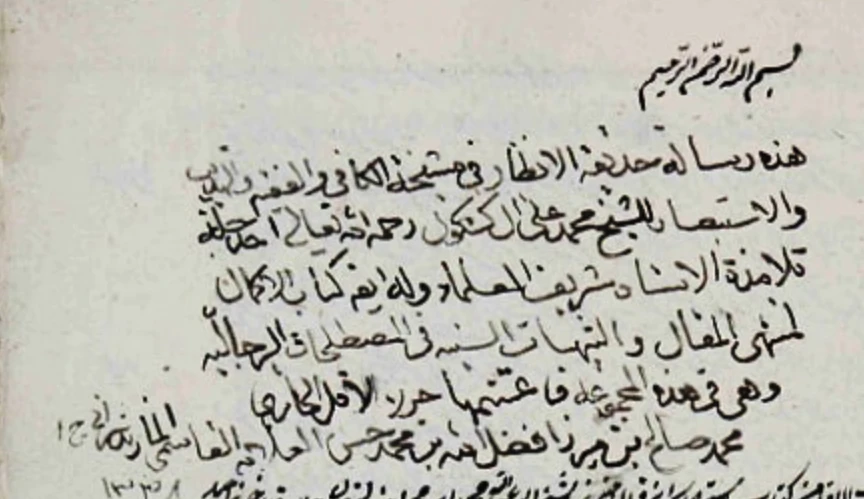 بسم الله الرحمن الرحيم
هذه رسالة حديقة الانظار في مشيخة الكافي والفقيه والتهذيب
والاستبصار للشيخ محمد علي ال كشكول رحمه الله تعالى احد اجلة
تلامذة الاستاد شريف العلماء وله ايضا كتاب الاكمال
لمنتهى المقال والتنبيهات السنيه في المصطلحات الرجاليه
وهي في هذه المجموعه فاغتنمها حرره الاقل الحايري
محمد صالح ابن ميرزا فضل الله بن محمد حسن العلامه